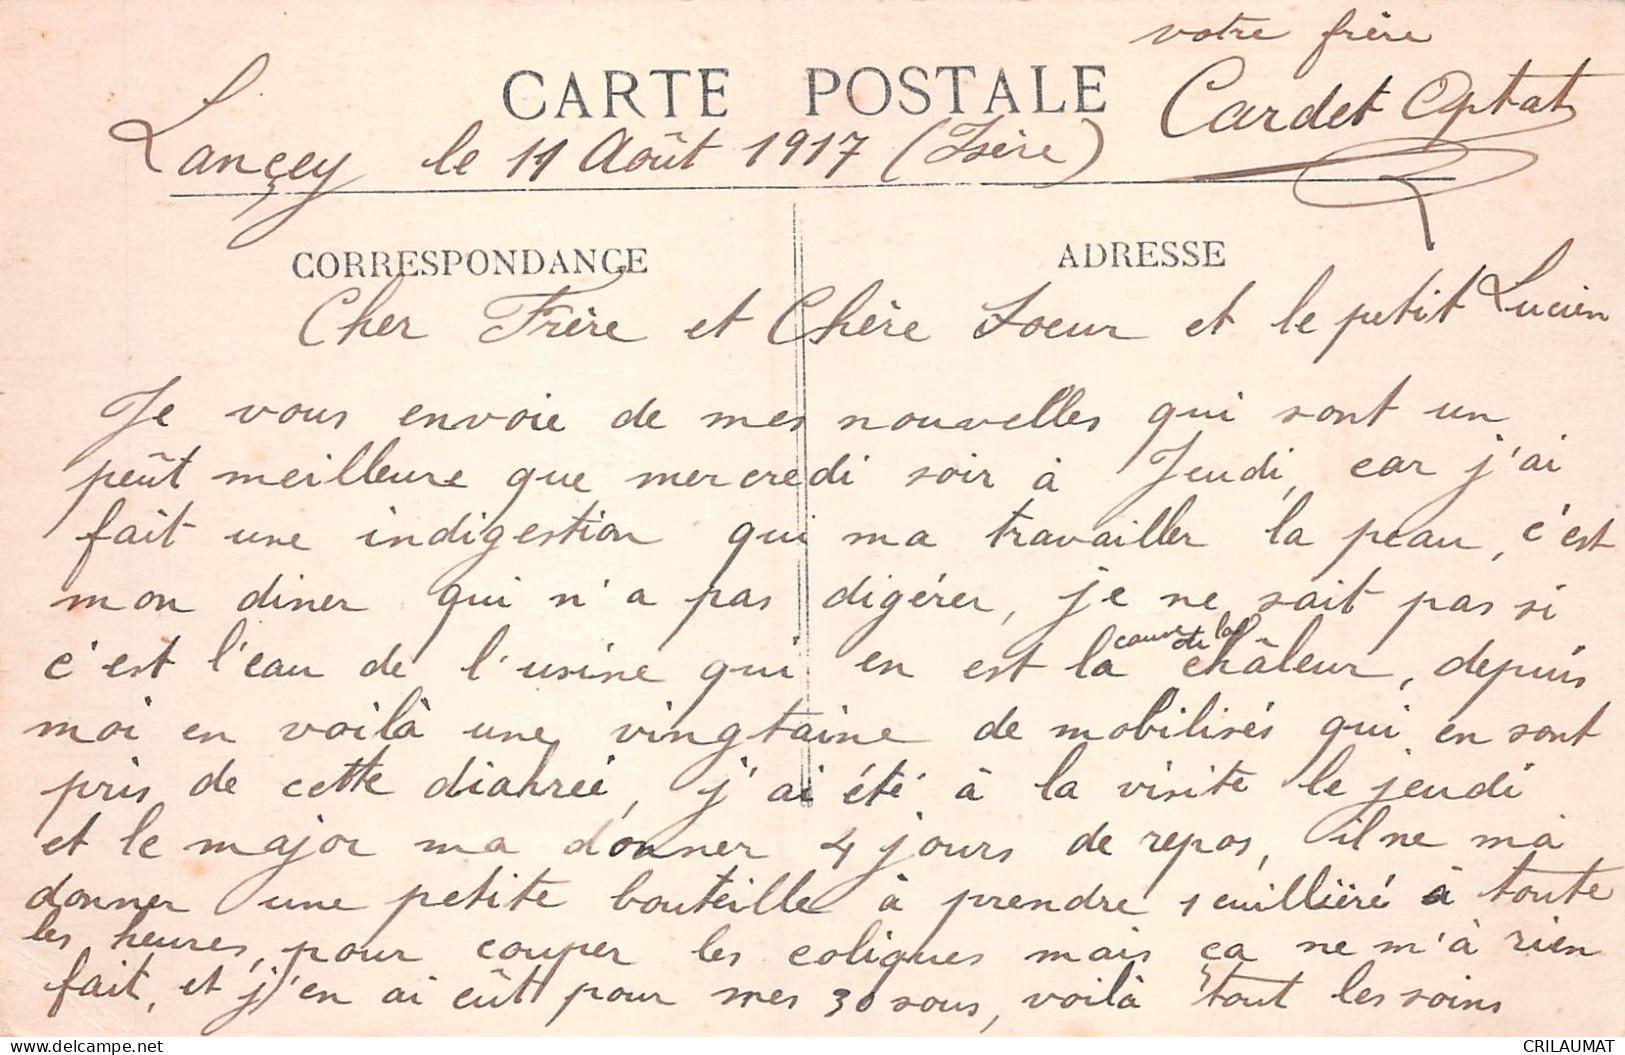 votre frère
CARTE POSTALE
Cardet Optat
Lançey le 11 Août 1917 (Isère)
CORRESPONDANCE
ADRESSE
Cher Frère et Chère Soeur et le petit Lucien
Je vous envoie de mes nouvelles qui sont un
peût meilleure que mercredi soir à Jeudi, car j'ai
fait une indigestion qui ma travailler la peau, c'est
mon diner qui n'a pas digérer, je ne sait pas si
c'est l'eau de l'usine qui en est la cause de la châleur, depuis
moi en voilà une vingtaine de mobilisés qui en sont
pris de cette diahrée, j'ai été à la visite le jeudi
et le major ma donner 4 jours de repos, il ne mà
donner une petite bouteille à prendre 1 cuillièré à toute
les heures, pour couper les coliques mais ça ne m'à rien
fait, et j'en ai eût pour mes 30 sous, voilà tout les soins
delcampe.net
CRILAUMAT